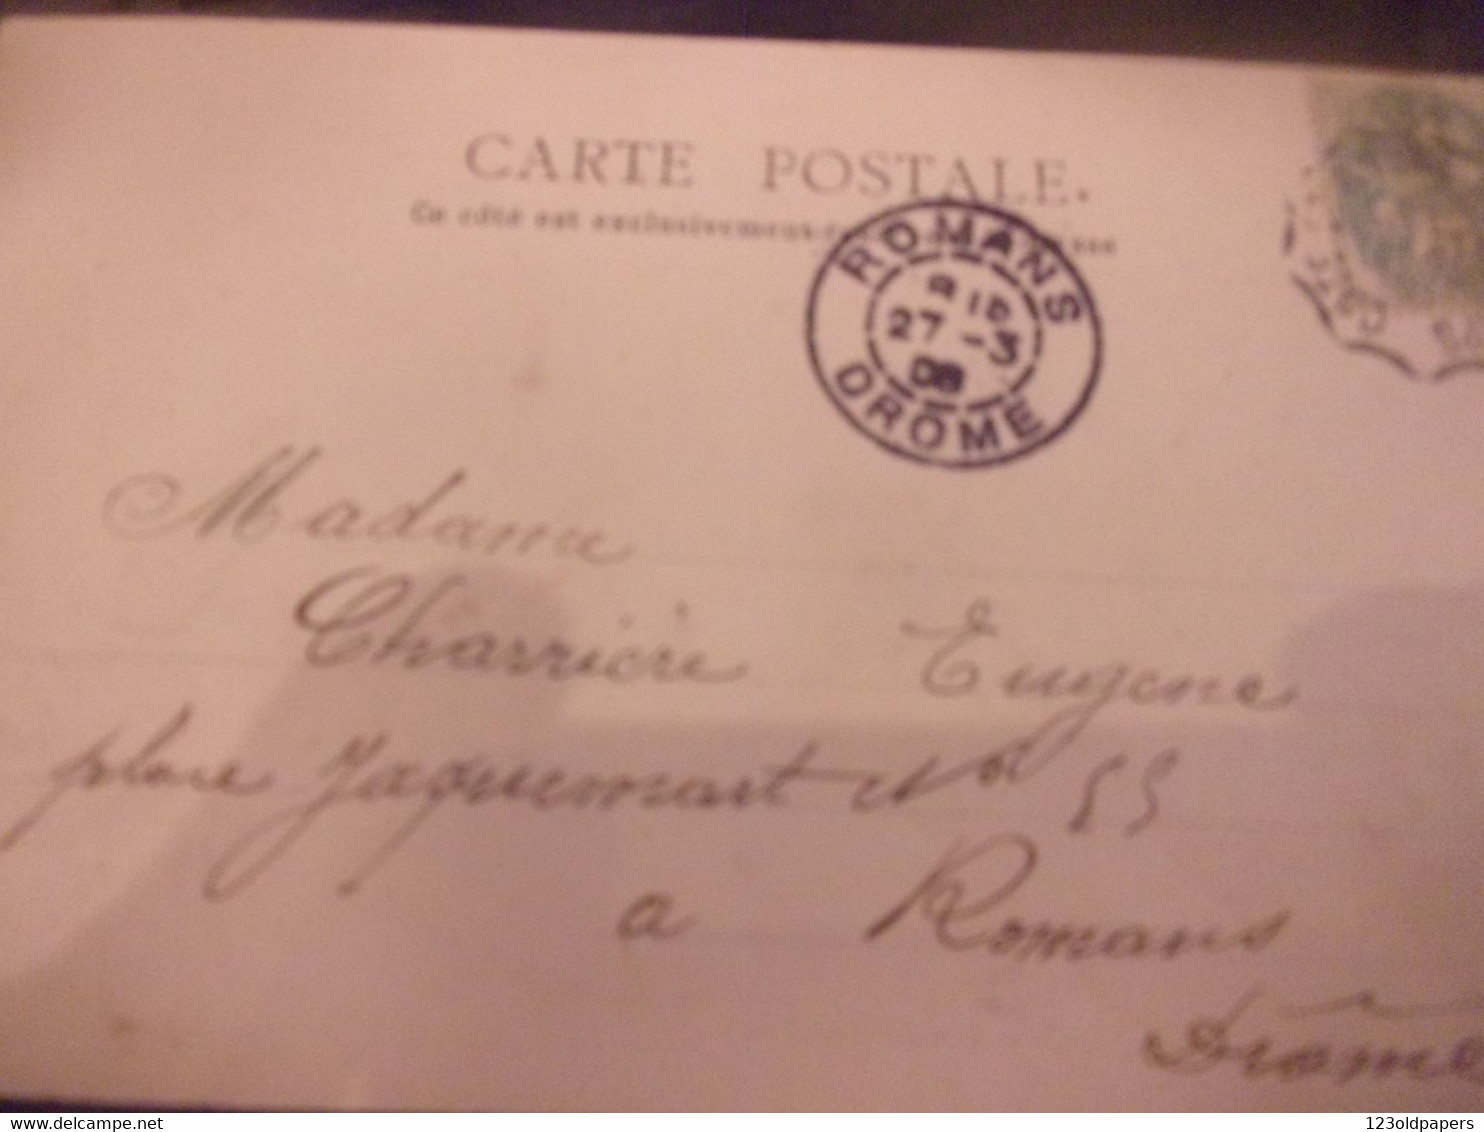 CARTE POSTALE.
Ce côté est exclusivement
ROMANS
27 -3
08
DROME
Madame
Charrière Eugène
place Jaquemart No 55
a Romans
Drôme
www.delcampe.net
123oldpapers